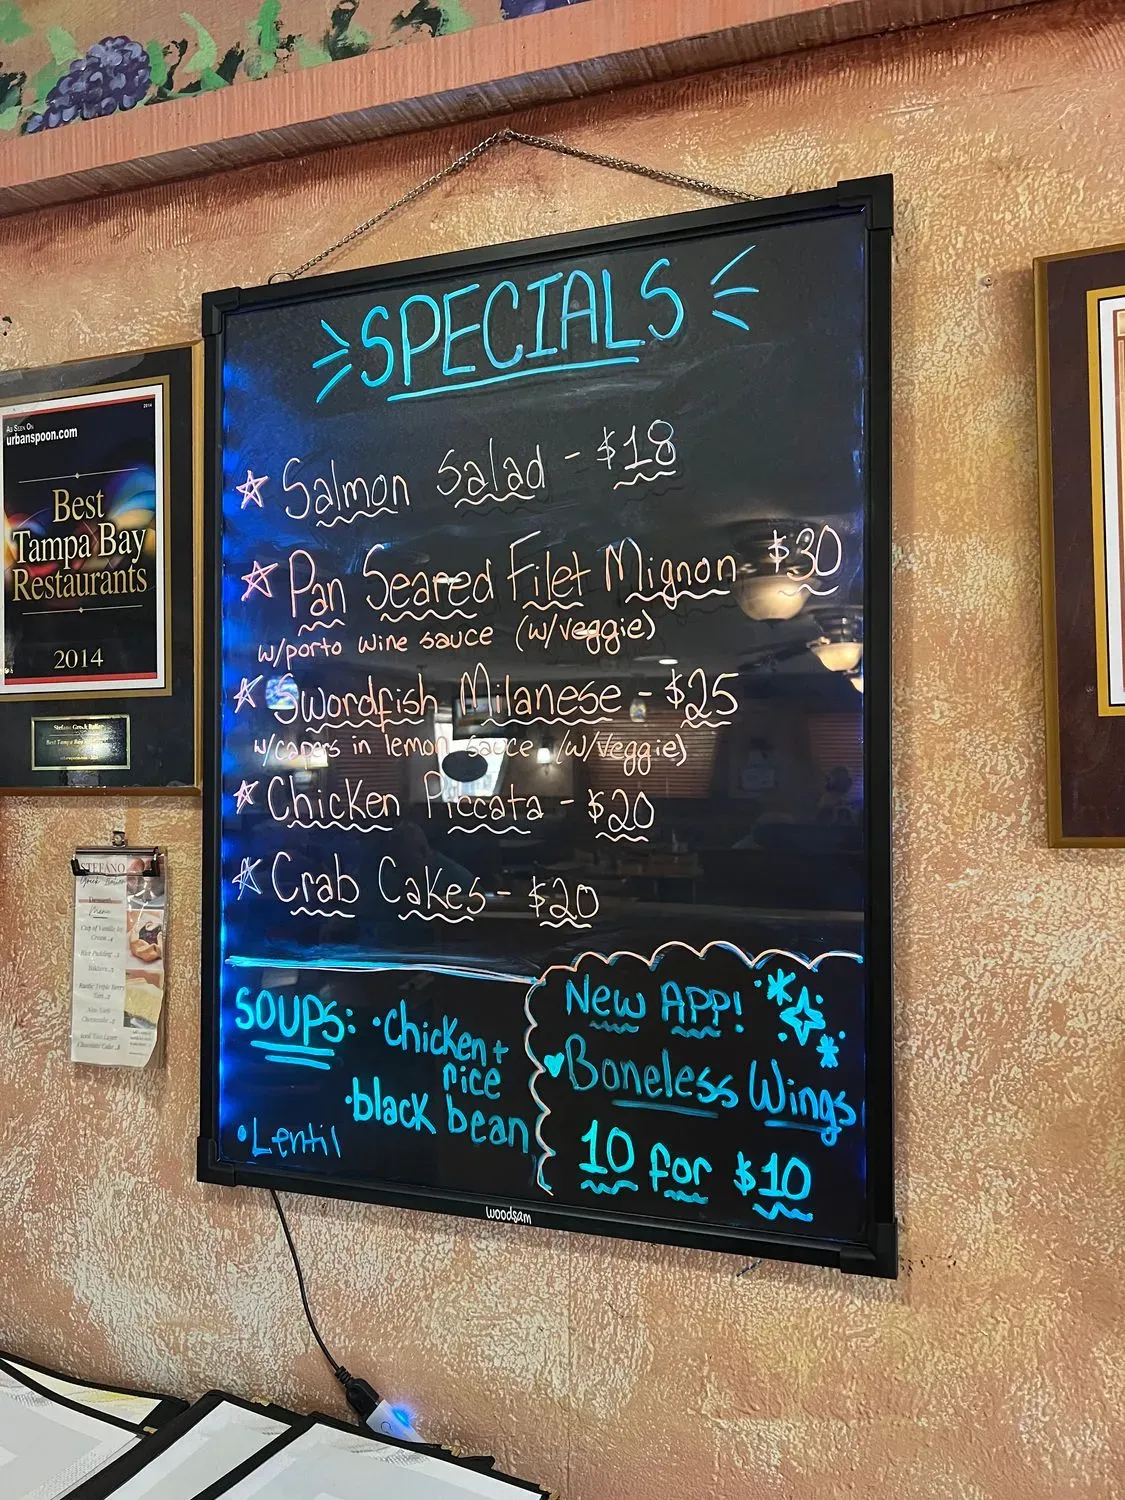 SPECIALS
Salmon Salad - $18
Pan Seared Filet Mignon $30
w/porto wine sauce (w/veggie)
Swordfish Milanese - $25
w/capers in lemon sauce (w/veggie)
Chicken Piccata - $20
Crab Cakes - $20
SOUPS: • Chicken +
rice
• black bean
• Lentil
New APP!
Boneless Wings
10 for $10
woodsam
2014
As Seen On
urbanspoon.com
Best
Tampa Bay
Restaurants
2014
STEFANO
Menu
Cup of Vanilla Ice
Cream
Rice Pudding
Rustic Triple Berry
Tart
New York
Cheesecake
Chocolate Cake